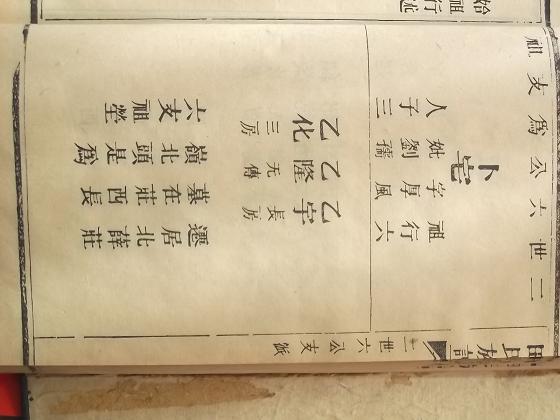 始祖行述
二世六公為支祖
祖行六
字厚風
卜宅
妣劉孺
人子三
乙字 長房
乙隆 无傳
乙化 三房
遷居北薛莊
墓在莊西長
嶺北頭是為
六支祖塋
氏族譜
二世六公支派